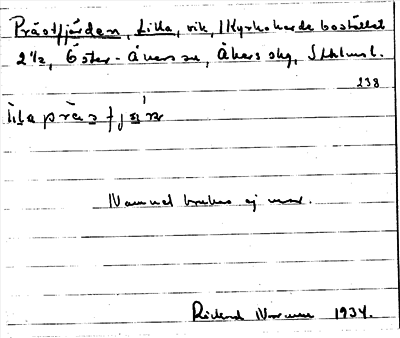 Prästfjärden, Lilla, vik, 1 Kyrkoherdebostället
2 ½, Öster-Åkers sn, Åkers skg, Sthlms l.
238
lila präsfjæ̀ṛ
Namnet brukas ej mer.
Rickard Norman 1934.